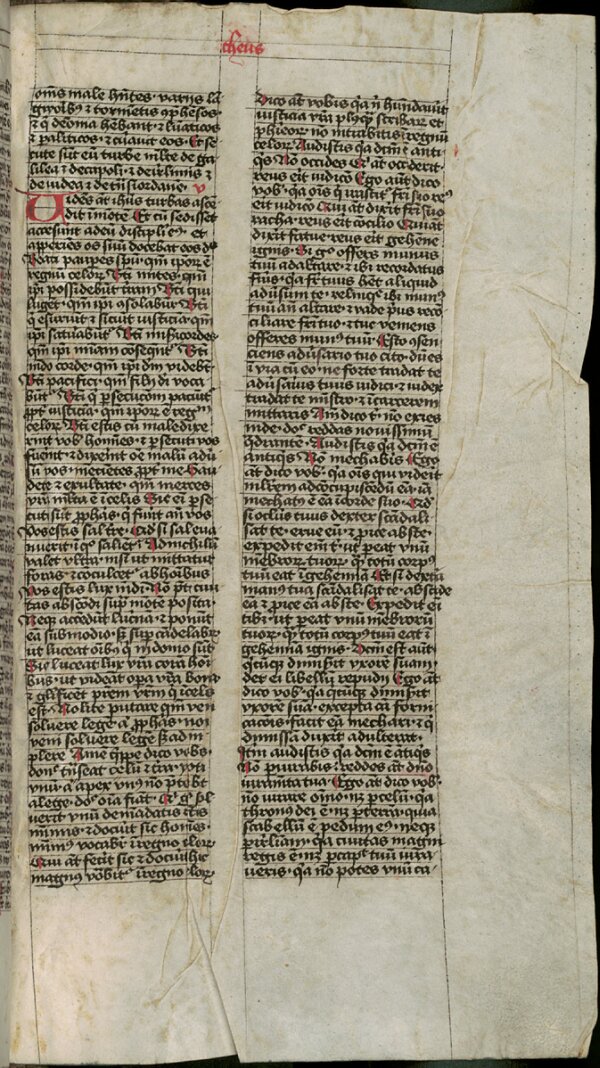 cheus
om̄s male hn̄tes · varijs lā
gworib9 ⁊ tormētis ꝯp̄hēsos
⁊ q̇ demōia hēbant · ⁊ lūaticos
⁊ paliticos · ⁊ curauit eos · Et se
cute sūt eū turbe m̄lte de ga
lilea ⁊ decapoli · ⁊ de ierl̄imis ⁊
de iudea ⁊ de trāsiordanē · v
Uidēs aūt ih̄us turbas ascē
dit ī mōte · Et cū sedisset
accesunt ad eū discipl̄i ei9 · et
apperiēs os suū docebat eos d̄s
Bati paup̄es sp̄u · qm̄ ip̄or ē
regnū celor Bti mites · qm̄
ip̄i possidebūt t̄ram Bti qui
luget · qm̄ ip̄i ꝯsolabūr Bti
q̇ esuriūt ⁊ siciūt iusticiā · qm̄
ip̄i sat̄uabūt Bti misi̇cordes
qm̄ ip̄i mīam cōsequēt Bti
mūdo corde · qm̄ ip̄i dm̄ videbūt
Bti pacifici · qm̄ filij di̇ voca
būt Bti q̇ persecucōm paciūt
ꝓpt̄ iusticiā · qm̄ ip̄or ē regm̄
celor Bti estis cū maledixe
rint vob̄ hom̄nes · ⁊ persecuti vos
fueīt · ⁊ dixerint om̄e malū adū
sū vos · mētietes ꝓpt̄ me Gau
dete ⁊ exultate · qm̄ merces
vr̄a ml̄ta ē ī celis Sic ei̇ perse
cuti sūt ꝓphās · q̇ fūnt an̄ vos
Vos estis sal t̄re · Qd̓ si sal eua
nuerit · ī q̊ saliet Ad nichilū
valet vlt̄ra · nisi ut mittatur
foras · ⁊ cōculcet̄ ab hoībus
Vos estis lux mūdi · No pōt ciui
tas abscōdi sup̄ mōtē posita ·
Neqꝫ accedūt lucnā · ⁊ ponūt
eā sub modio · sꝫ sup̄ cādelabr
ut luceat oib9 q̇ in domo sūt
Sic luceat lux vr̄a corā hoi
bus · ut videāt opa vr̄a bona
⁊ gl̄ificēt prēm vr̄m q̇ ī celis
est · Nolite putare qm̄ veni
soluere legē aꝰ ꝓphās · nō
veni soluere legē sꝫ adim
plere Amē q̇ppe dico vobis ·
donꝰ trāseat celū ⁊ t̄ra · iota
vnū aꝰ apex vnꝰ nō p̄t̄ibt
a lege · donꝰ oīa fiāt · Qi g̊ sol
uerit vnū de mādatis istis
minimis · ⁊ docuit sic homīes ·
mīmus vocabit̄ ī regno celor
Qui aūt fecit sic ⁊ docuit hic
magnus vocabit̄ ī regno celor
Dico aūt vobis qa nī habūdauīt
iusticia vr̄a plusqꝫ scribar et
phi̇seor · nō intrabitis ī regnū
celor Audistis qa dc̄m ē anti
q̇s No occides Qi aūt occiderit ·
reus erit iudicio Ego aūt dico
vob̄ · qa ois q̇ irascit̄ fri̇ suo reꝰ
erit iudicio Qui aūt dixit fri̇ suo
racha · reus erit cōcilio Qui aūt
dixit fatue · reus erit gehēne
ignis · Si g̊ offers munus
tuū ad altare · ⁊ ibi recordatus
fu̇is · qa fr̄ tuus hēt aliquid
adūsum te · relinqꝫ ibi munꝰ
tuū an̄ altare · ⁊ vade prius reco
ciliare fri̇ tuo · ⁊ tūc veniens
offeres munꝰ tuū · Esto ꝯsen
ciens adūsario tuo cito · dū es
ī via cū eo · ne forte tradat te
adūsarius tuus iudici · ⁊ iudex
tradat te mīstro · ⁊ ī carcerem
mittaris Am̄ dico t̄ · nō exies
inde · donꝰ reddas nouissimū
q̓drante · Audistis qa dc̄m ē
antiq̇s No mechabis Ego
aūt dico vob̄ · qa ois qui videit
ml̄rem ad cōcupiscēdū eā · iā
mechatꝰ ē eā ī corde suo · Qd̓
si oclus tuus dexter scādali
sat te · erue eū · ⁊ ꝓice abs te ·
expedit eni̇ t̄ · ut peat vnū
mēbror tuor · qꝫ totū corpꝰ
tuū eat ī gehennā Et si dextra
manꝰ tua scādalisat te · abscide
eā · ⁊ ꝓice eā abs te · Expedit ei̇
tibi · ut peat vnū mēbrorū
tuor · qꝫ totū corpꝰ tuū eat ī
gehēnnā ignis · Dcm̄ est aūt
q̇cūqꝫ dimisit̄ vxorē suam ·
det ei libellū repudij Ego aūt
dico vob̄ · qa q̇cūqꝫ dimisit̄
vxorē suā · excepta cā forni
cacōis · facit eā mechari · ⁊ q̇
dimissā duxit adulterat ·
Itm̄ audistis qa dcm̄ ē atiqs
No piurabis · reddes aūt dn̄o
iuramta tua · Ego aūt dico vob̄ ·
nō iurare om̄īo · nꝫ per celū · qa
thronꝰ dei ē · nꝫ per terrā · quia
scabellū ē pedum eiꝰ · neqꝫ
per ir̄l̄iam · qa ciuitas magni
regis ē · nꝫ per capꝰ tuū iura
ueris · qa nō potes vnū ca